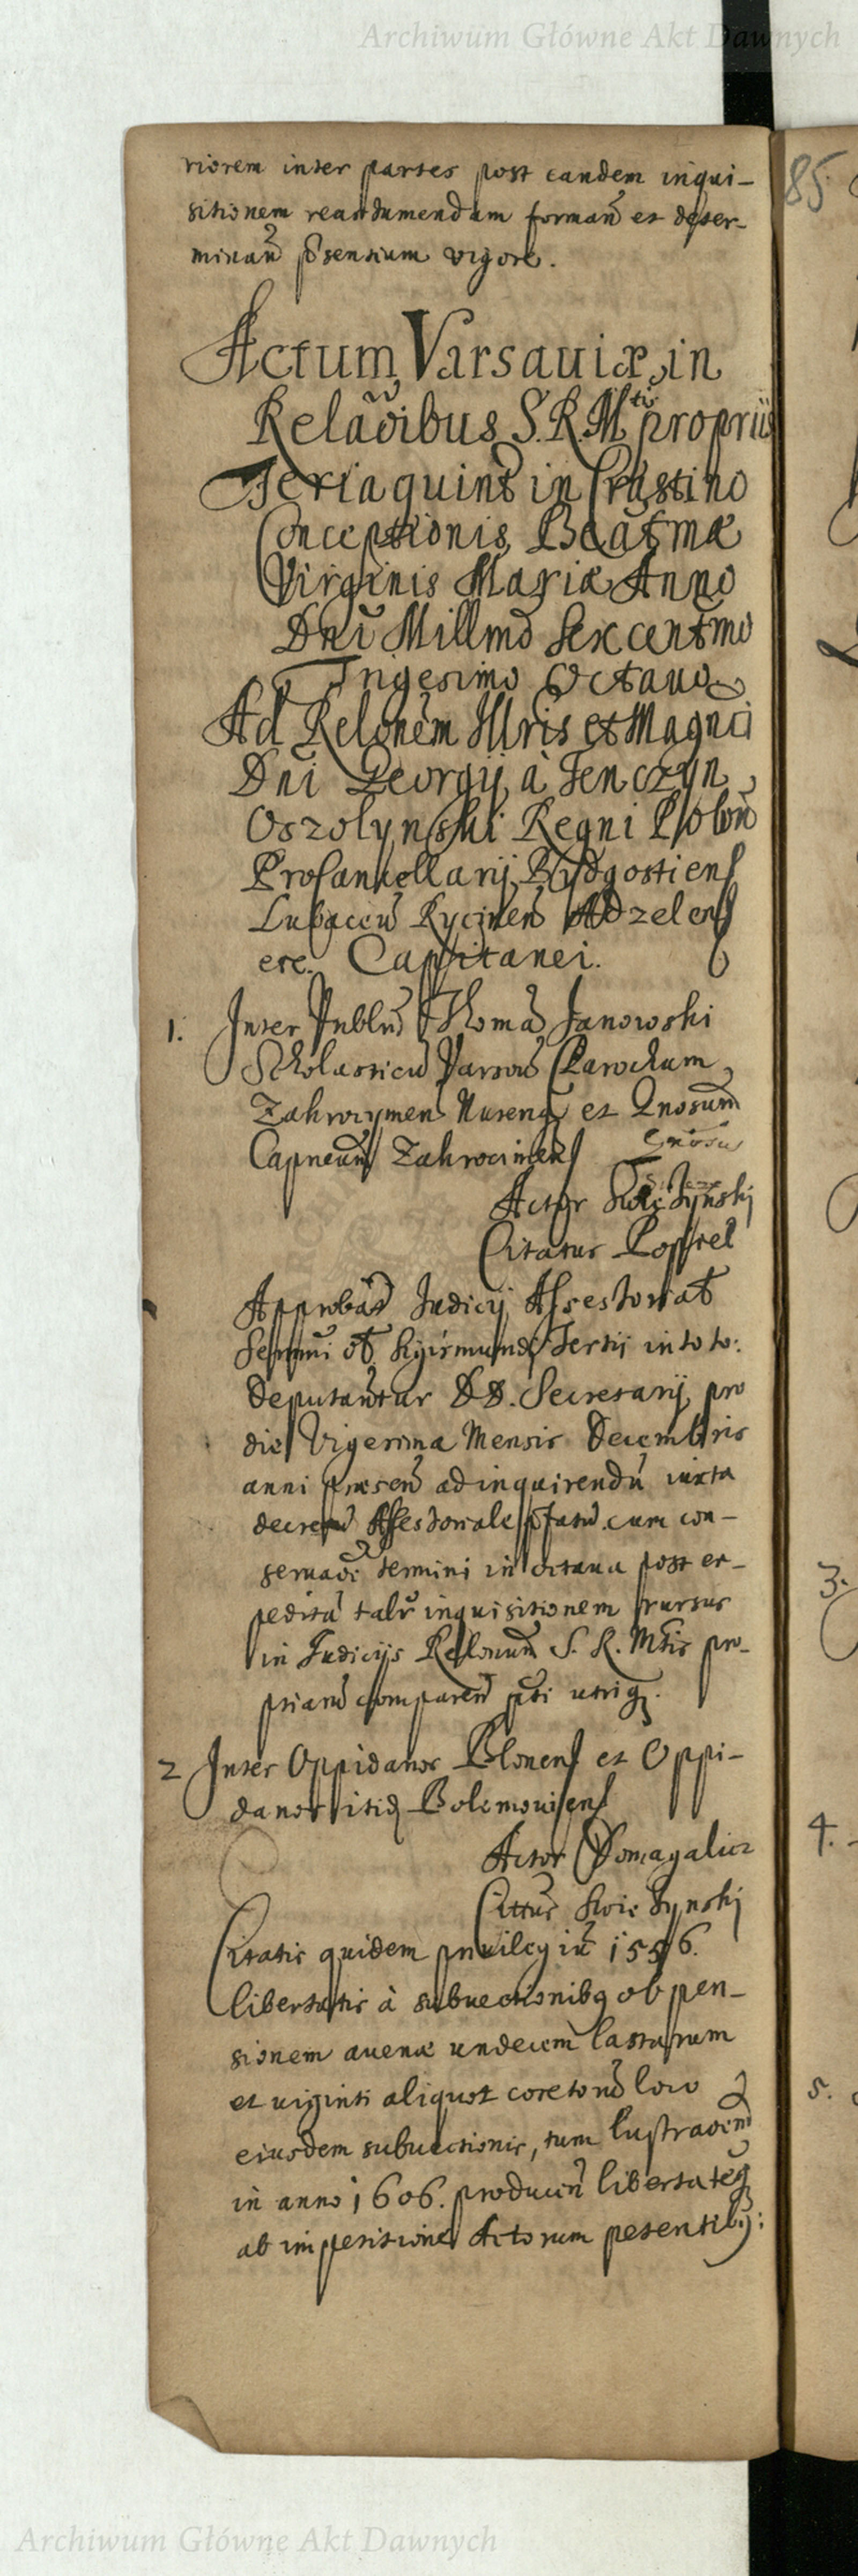 Archiwum Główne Akt Dawnych
riorem inter partes post eandem inqui-
sitionem reassumendam formań et deter-
minań p̃sentium vigore.
85
Actum Varsaviæ in
Relãoibus S. R. M^tis proprijs
Feria quinta in Crastino
Conceptionis Beatmæ
Virginis Mariæ Anno
Dni Millmo Sexcentmo
Trigesimo Octavo
Ad Relonem Illris et Magnci
Dni Georgij à Tenczyn
Oszolynski Regni Polon
Procancellarij Bydgostiens
Lubacen Rycinen Adzelens
etc. Capitanei.
1. Inter Thoma Janowski
Scholasticu Varsov Parochum
et Gnosum
Capneum Zakrocimens
Actor
Citatus Poppel
Approbat Judicij Assessoriat
Tertij in toto:
deputantur DD. Secretarij pro
die Vigesima Mensis Decembris
anni præsen ad inquirendu iuxta
decretu Assessoriale p̃fatu cum con-
servaõe termini in octava post ex-
pedita talr inquisitionem rursus
in Judicijs Relonum S. R. Mtis pro-
priaru comparen pti utriq.
2 Inter Oppidanos Blonens et Oppi-
danos itid Bolemouiens
Actor Domagalicz
Cittus
Citatis quidem priuilegiu 1556.
libertatis à subuectionibq ob pen-
sionem auenæ undecim lastarum
et uiginti aliquot coretoru loco
eiusdem subuectionis, tum lustraoem
in anno 1606. producen libertateq
ab impetitione Actorum petentibq:
3.
4.
5.
Archiwum Główne Akt Dawnych